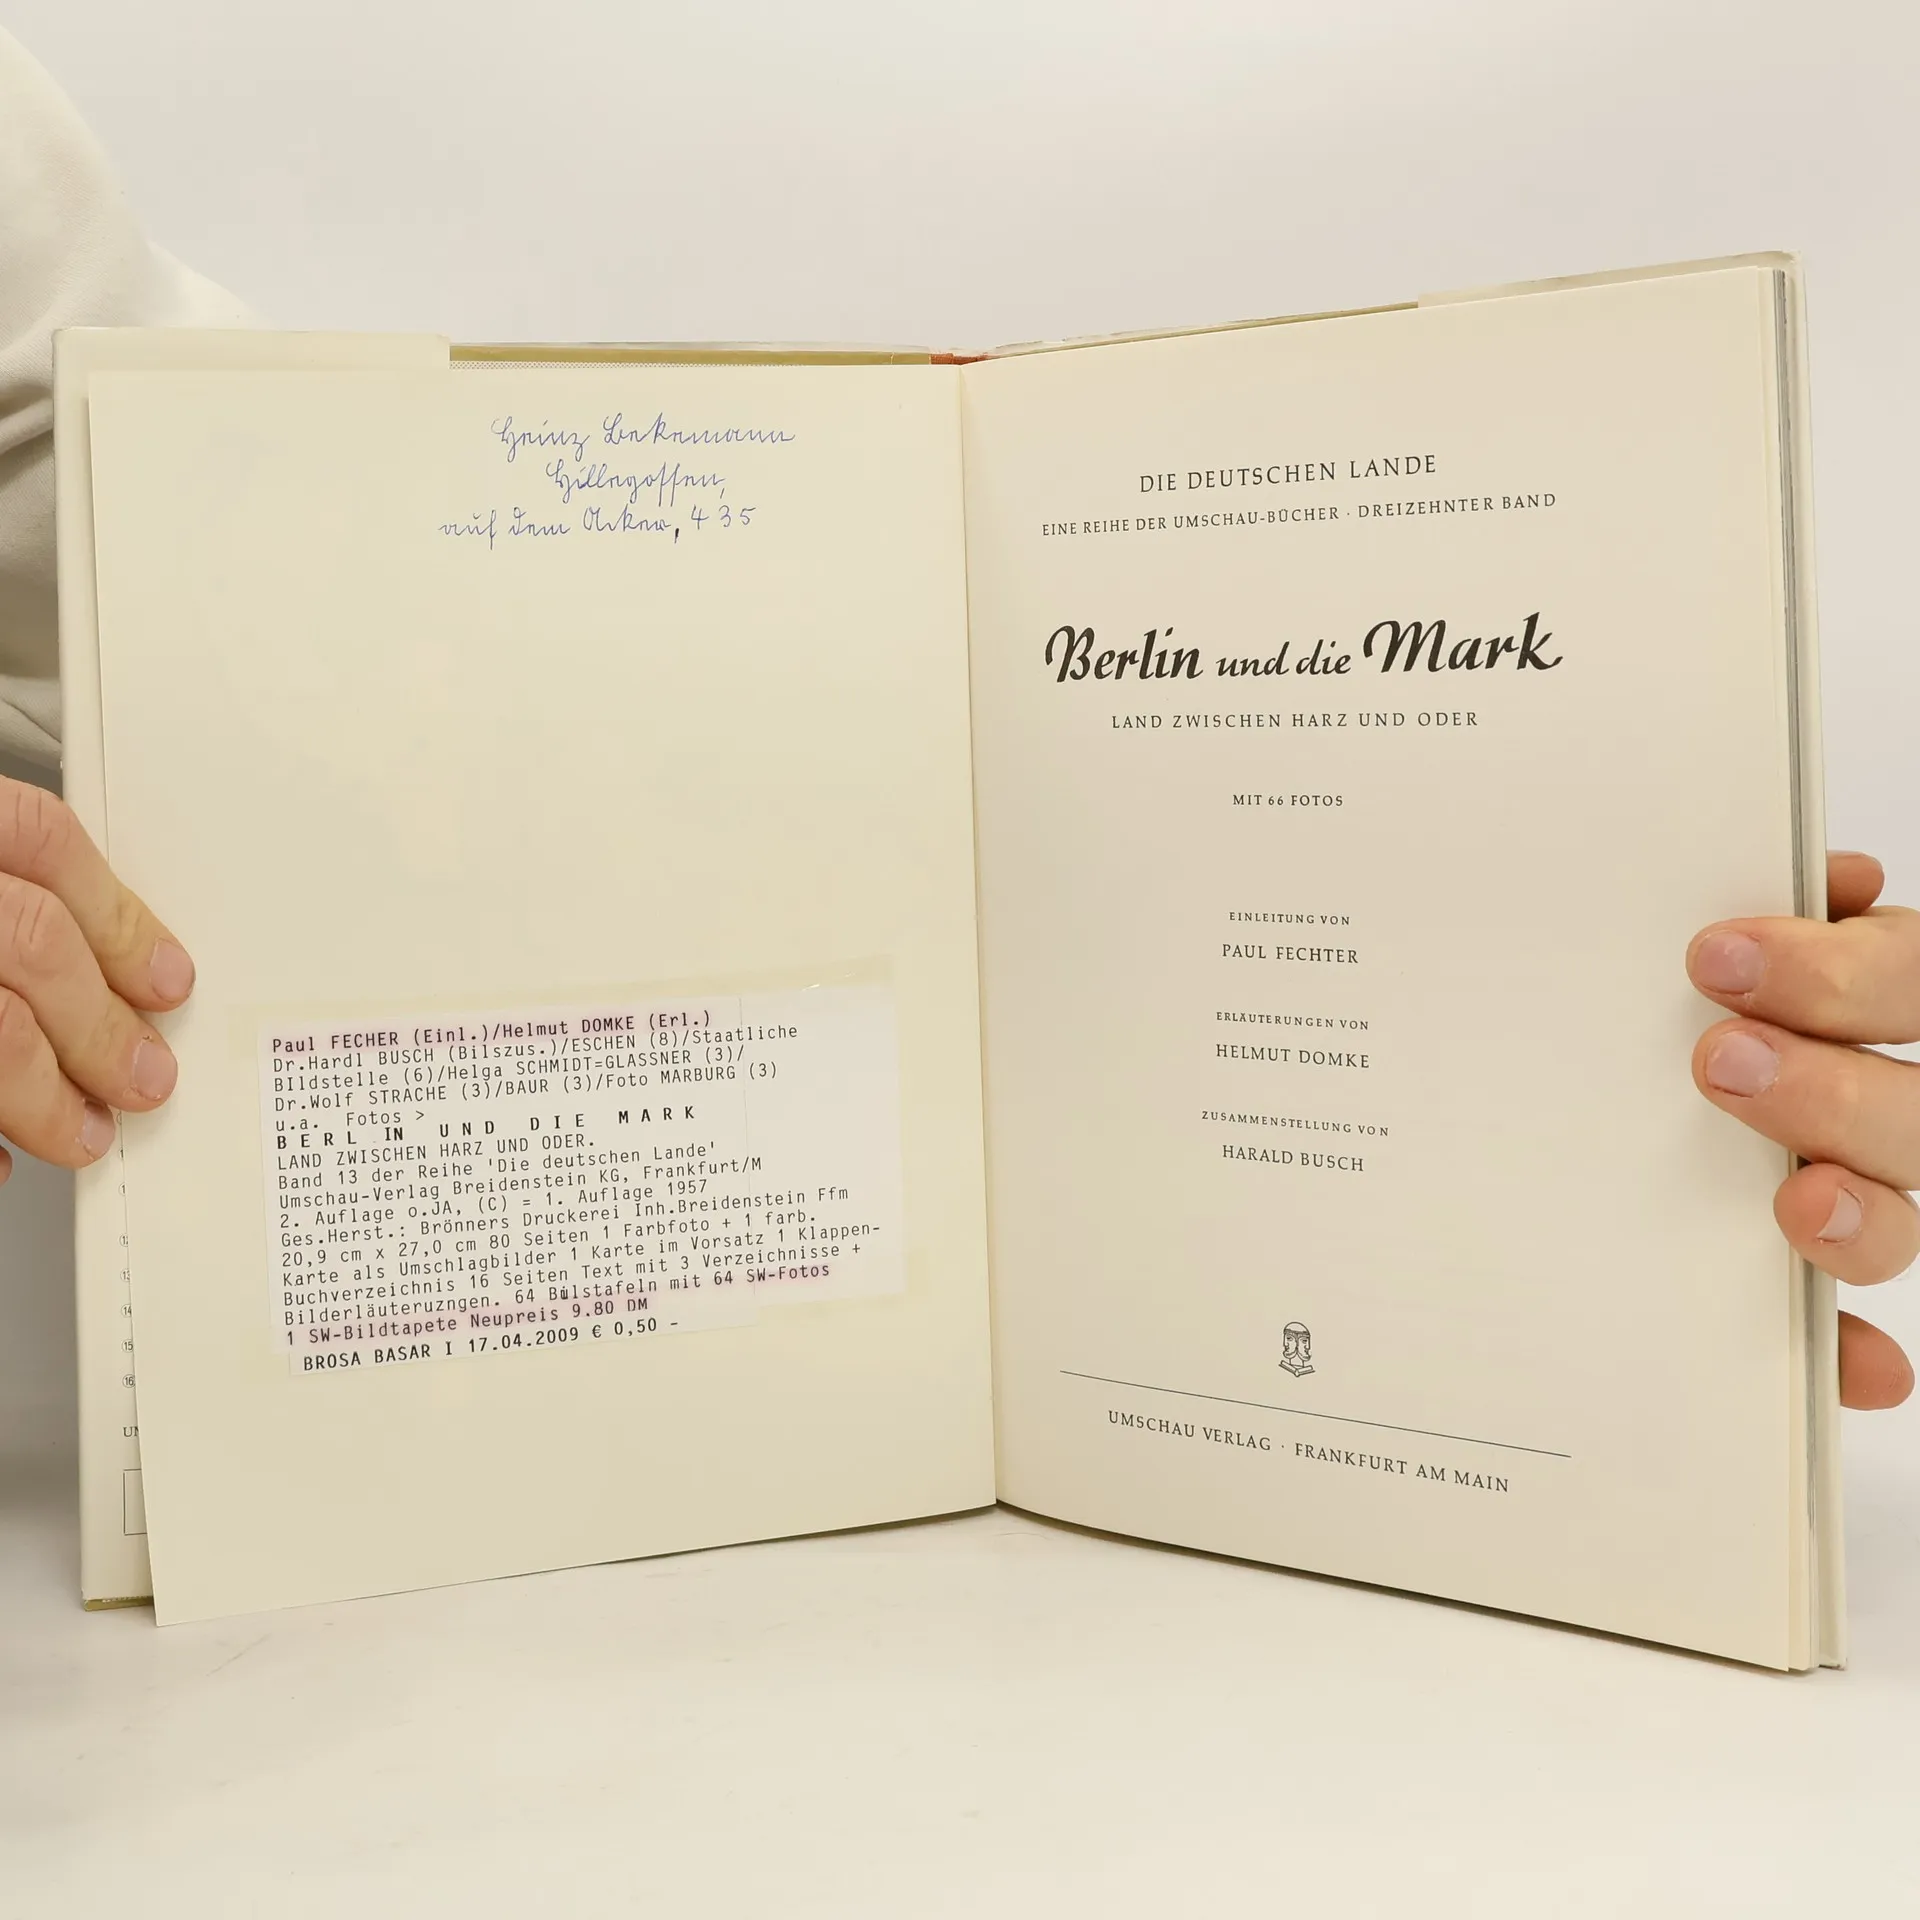 Heinz Bekemann
Hillegossen,
auf dem Acker, 435
Paul FECHER (Einl.)/Helmut DOMKE (Erl.)
Dr.Hardl BUSCH (Bilszus.)/ESCHEN (8)/Staatliche
BIldstelle (6)/Helga SCHMIDT=GLASSNER (3)/
Dr.Wolf STRACHE (3)/BAUR (3)/Foto MARBURG (3)
u.a. Fotos >
BERLIN UND DIE MARK
LAND ZWISCHEN HARZ UND ODER.
Band 13 der Reihe 'Die deutschen Lande'
Umschau-Verlag Breidenstein KG, Frankfurt/M
2. Auflage o.JA, (C) = 1. Auflage 1957
Ges.Herst.: Brönners Druckerei Inh.Breidenstein Ffm
20,9 cm x 27,0 cm 80 Seiten 1 Farbfoto + 1 farb.
Karte als Umschlagbilder 1 Karte im Vorsatz 1 Klappen-
Buchverzeichnis 16 Seiten Text mit 3 Verzeichnisse +
Bilderläuteruzngen. 64 Bilstafeln mit 64 SW-Fotos
1 SW-Bildtapete Neupreis 9.80 DM
BROSA BASAR I 17.04.2009 € 0,50 -
14
15
16
DIE DEUTSCHEN LANDE
EINE REIHE DER UMSCHAU-BÜCHER · DREIZEHNTER BAND
Berlin und die Mark
LAND ZWISCHEN HARZ UND ODER
MIT 66 FOTOS
EINLEITUNG VON
PAUL FECHTER
ERLÄUTERUNGEN VON
HELMUT DOMKE
ZUSAMMENSTELLUNG VON
HARALD BUSCH
UMSCHAU VERLAG · FRANKFURT AM MAIN